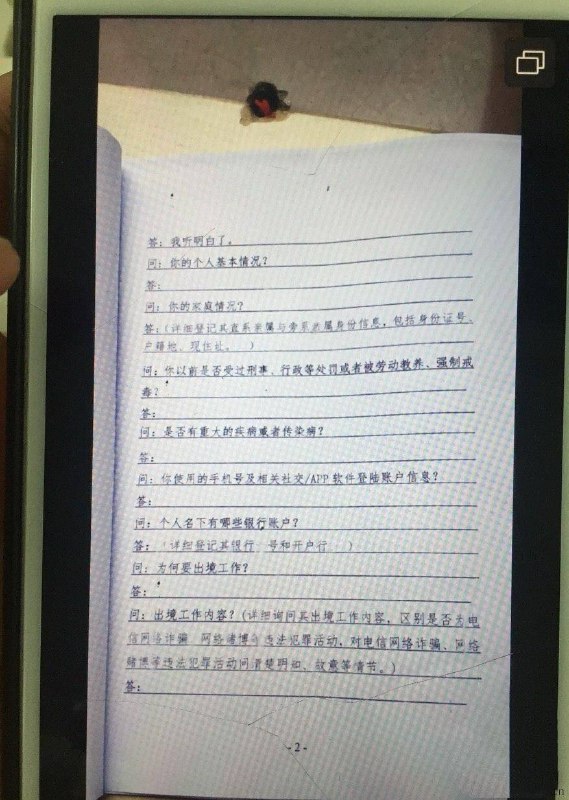 答：我听明白了。
问：你的个人基本情况？
答：
问：你的家庭情况？
答：（详细登记其直系亲属与旁系亲属身份信息，包括身份证号、
户籍地、现住址。）
问：你以前是否受过刑事、行政等处罚或者被劳动教养、强制戒
毒？
答：
问：是否有重大的疾病或者传染病？
答：
问：你使用的手机号及相关社交/APP 软件登陆账户信息？
答：
问：个人名下有哪些银行账户？
答：（详细登记其银行 号和开户行 ）
问：为何要出境工作？
答：
问：出境工作内容？（详细询问其出境工作内容，区别是否为电
信网络诈骗 网络赌博等违法犯罪活动，对电信网络诈骗、网络
赌博等违法犯罪活动问清楚明知、故意等情节。）
答：
-2-